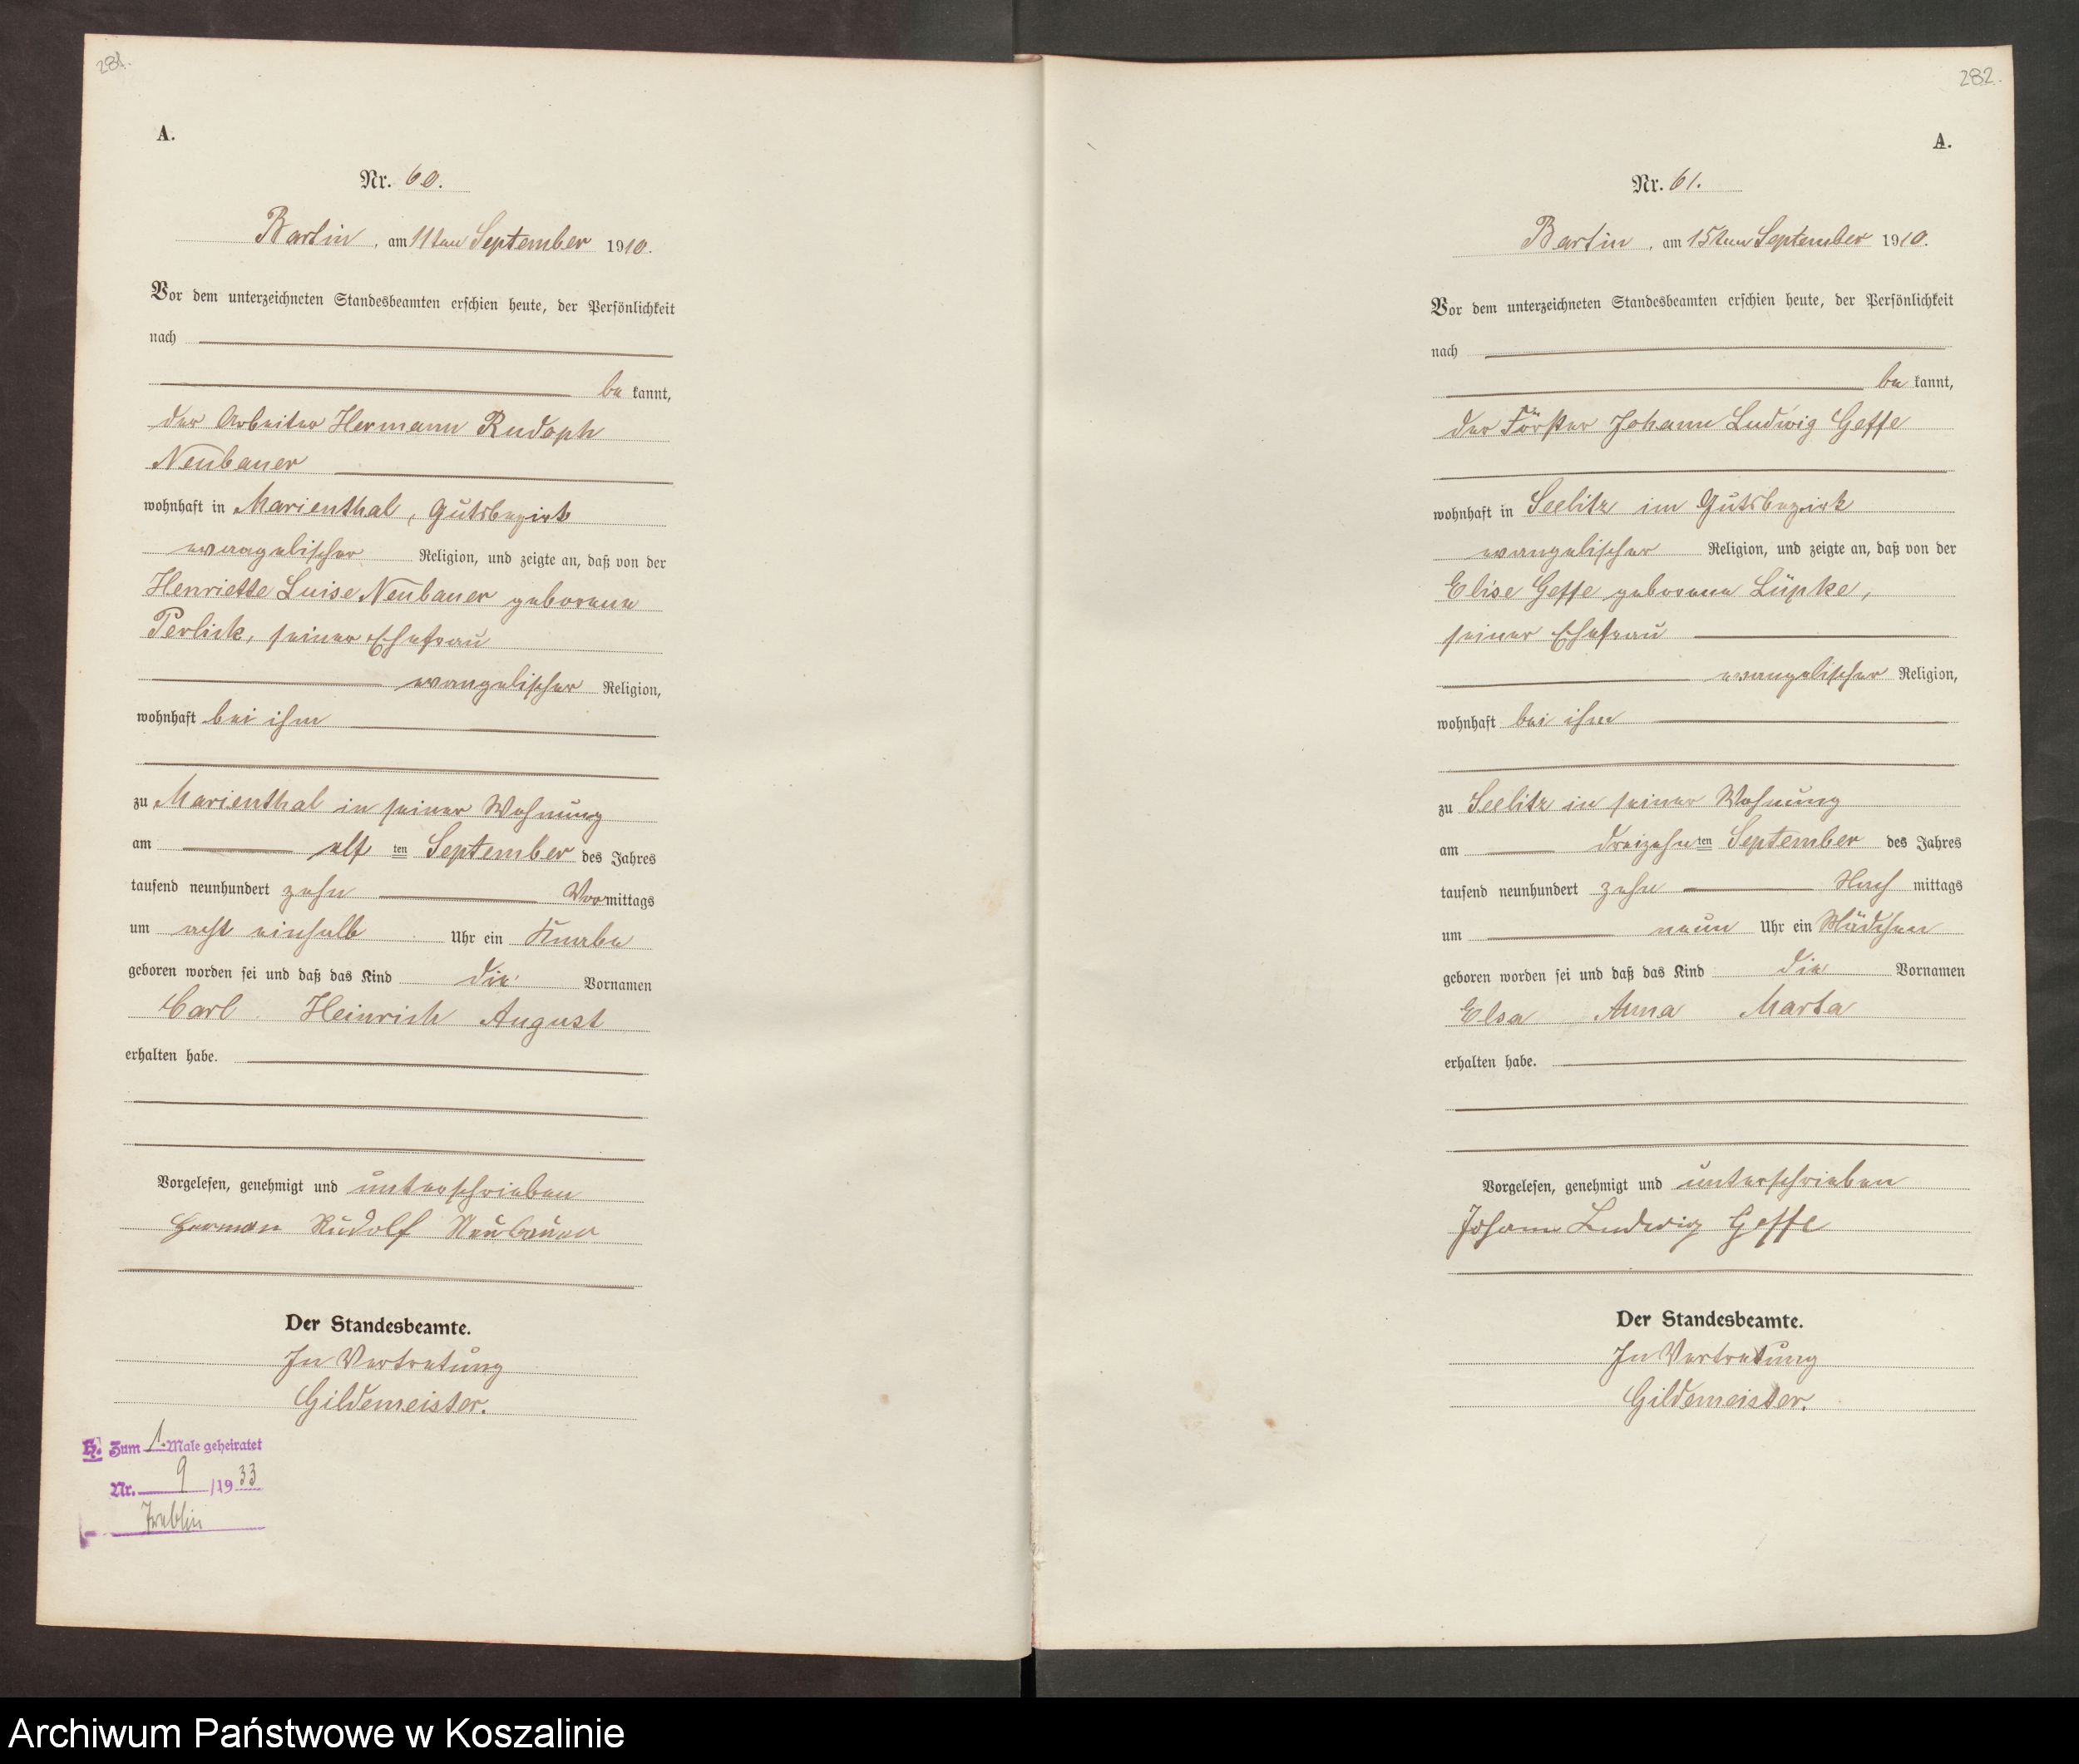 281.
A.
Nr. 60.
Bartin, am 11ten September 1910.
Vor dem unterzeichneten Standesbeamten erschien heute, der Persönlichkeit
nach
be kannt,
der Arbeiter Hermann Rudoph
Neubauer
wohnhaft in Marienthal, Gutsbezirk
evangelischer Religion, und zeigte an, daß von der
Henriette Luise Neubauer geborene
Perlick, seiner Ehefrau
evangelischer Religion,
wohnhaft bei ihm
zu Marienthal in seiner Wohnung
am elf ten September des Jahres
tausend neunhundert zehn Vormittags
um acht einhalb Uhr ein Knabe
geboren worden sei und daß das Kind die Vornamen
Carl Heinrich August
erhalten habe.
Vorgelesen, genehmigt und unterschrieben
Herman Rudolf Neubauer
Der Standesbeamte.
In Vertretung
Gildemeister.
H. Zum 1. Male geheiratet
Nr. 9 /1933
282.
A.
Nr. 61.
Bartin, am 15ten September 1910.
Vor dem unterzeichneten Standesbeamten erschien heute, der Persönlichkeit
nach
be kannt,
der Förster Johann Ludwig Geffe
wohnhaft in Seelitz im Gutsbezirk
evangelischer Religion, und zeigte an, daß von der
Elise Geffe geborene Lüpke,
seiner Ehefrau
evangelischer Religion,
wohnhaft bei ihm
zu Seelitz in seiner Wohnung
am dreizehn ten September des Jahres
tausend neunhundert zehn Nach mittags
um neun Uhr ein Mädchen
geboren worden sei und daß das Kind die Vornamen
Elsa Anna Marta
erhalten habe.
Vorgelesen, genehmigt und unterschrieben
Johann Ludwig Geffe
Der Standesbeamte.
In Vertretung
Gildemeister.
Archiwum Państwowe w Koszalinie